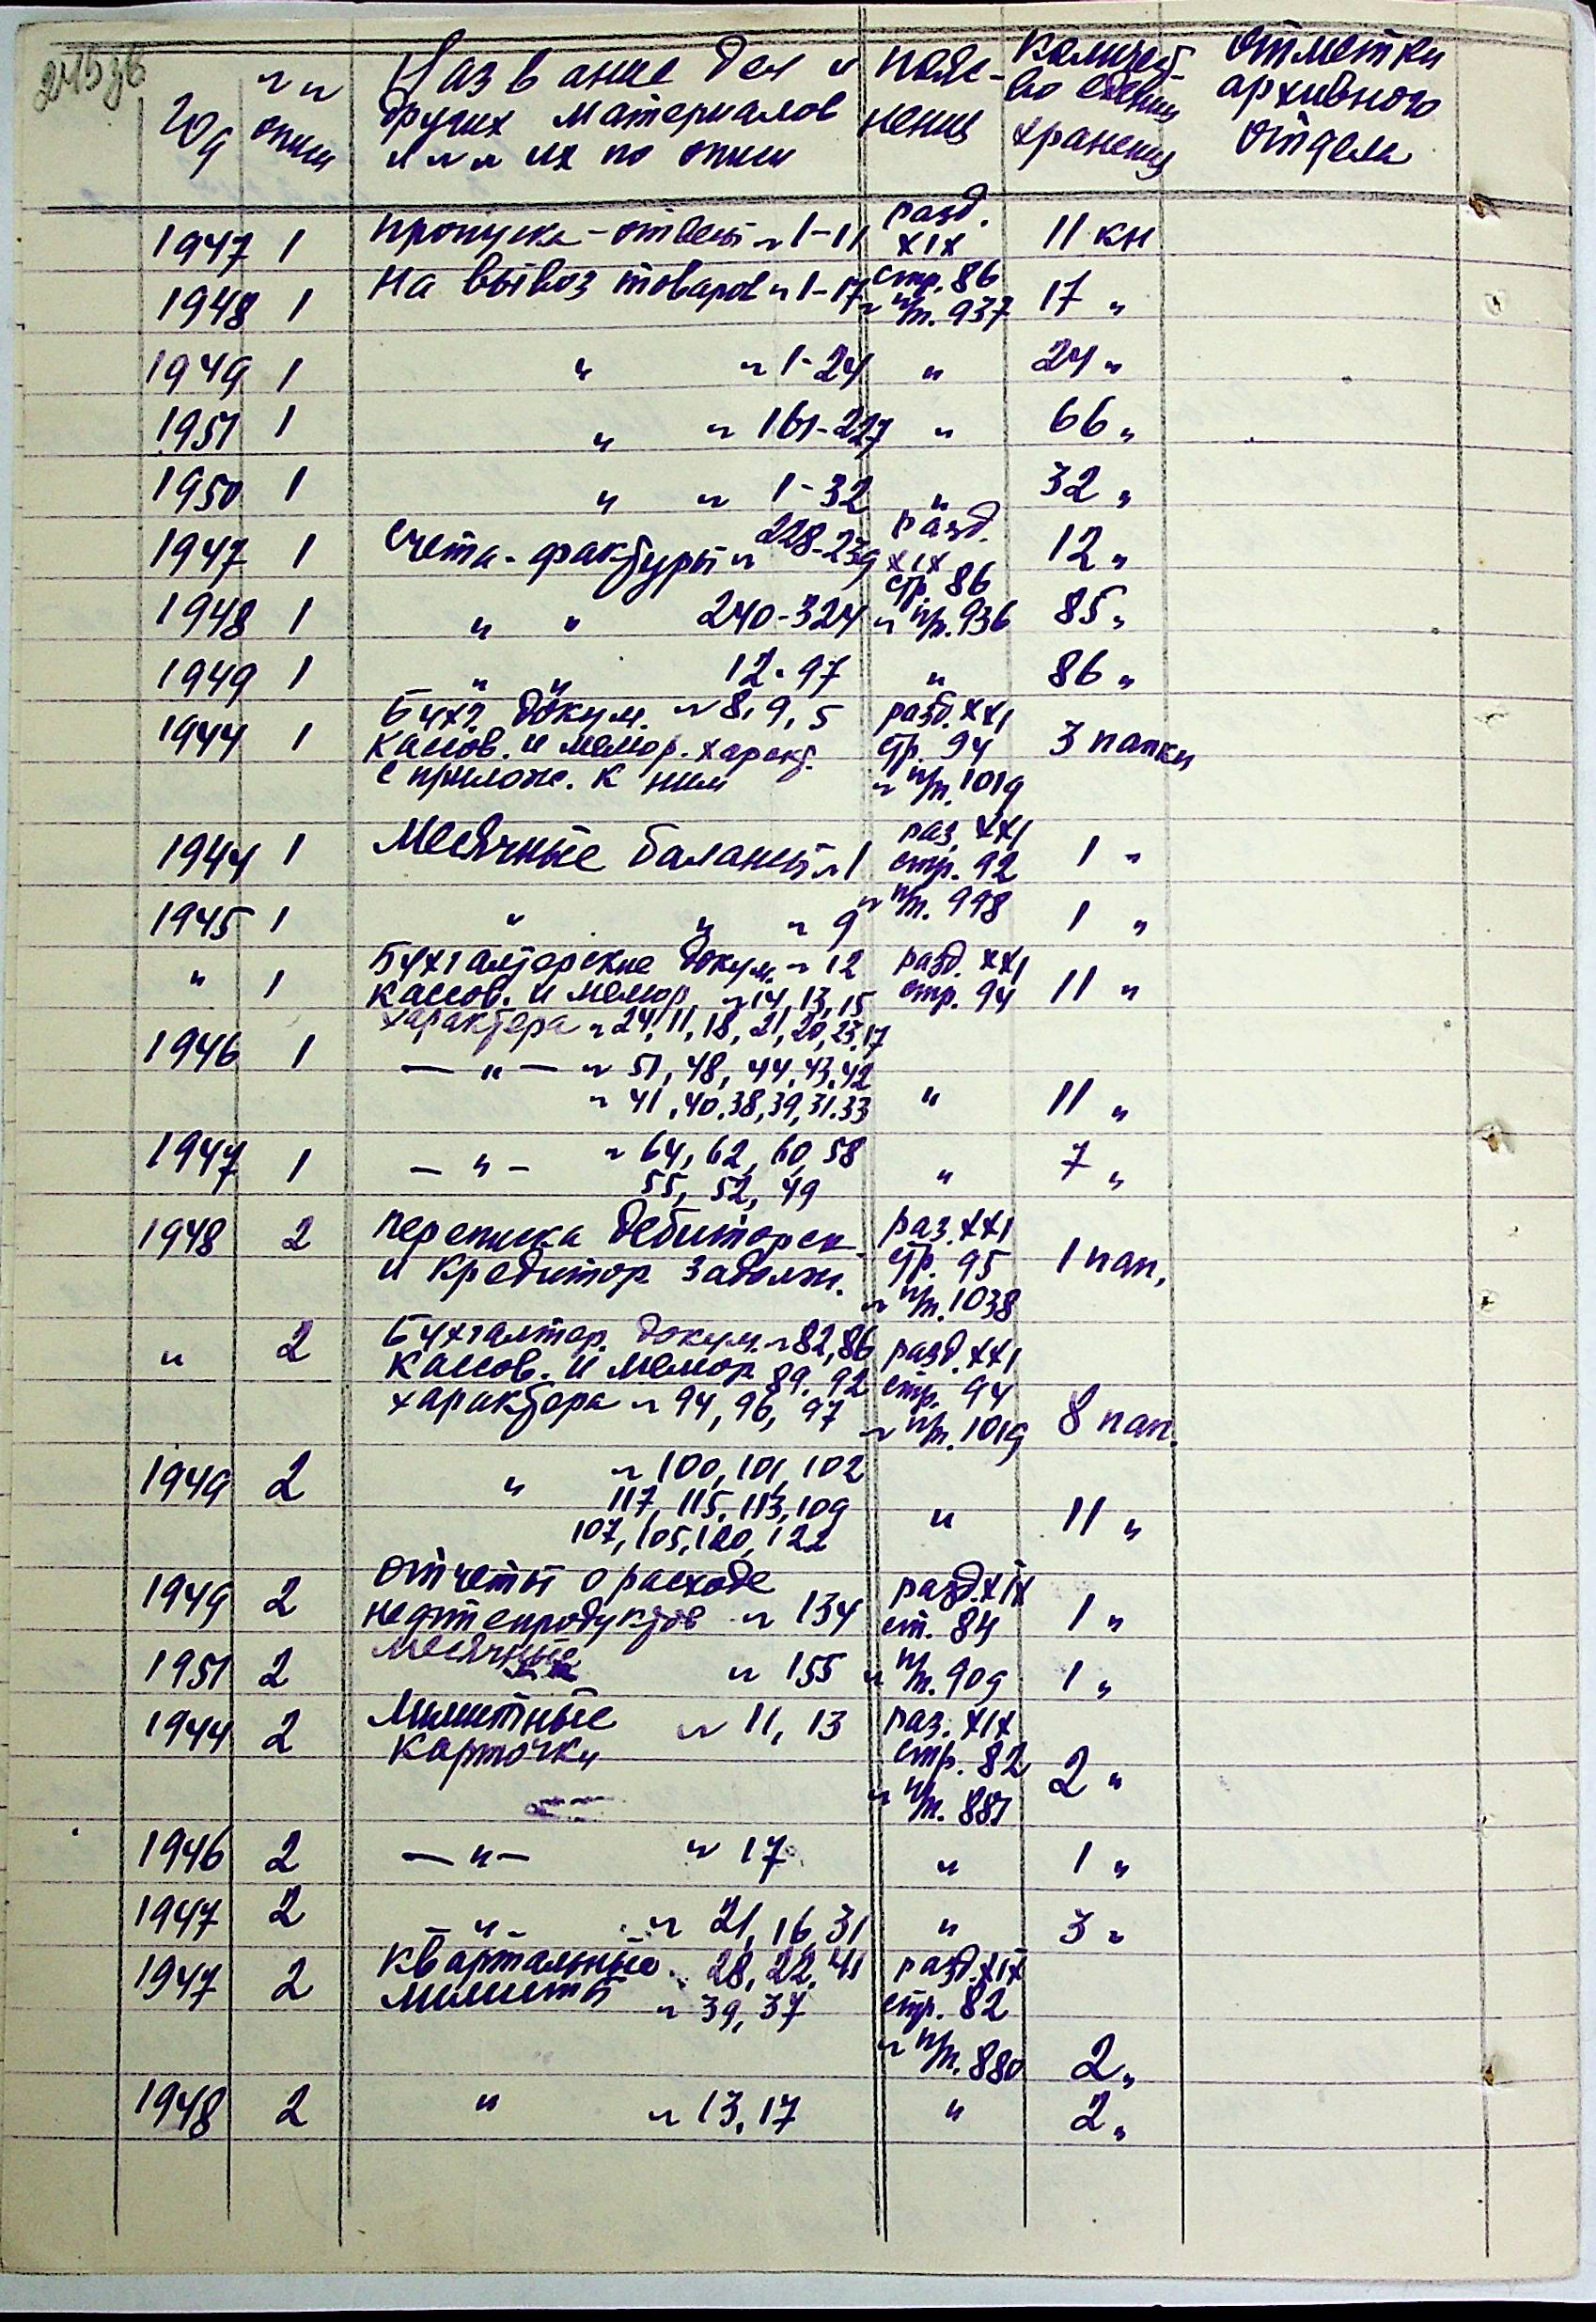 Год №№ описи Название дел и других материалов и №№ их по описи Пояснения Количество единиц хранения Отметки архивного отдела
1947 1 Пропуска-ответы № 1-11 разд. XIX 11 кн
1948 1 На вывоз товаров № 1-17 стр. 86 № п/т. 937 17 "
1949 1 " № 1-24 " 24 "
1951 1 " № 161-227 " 66 "
1950 1 " № 1-32 " 32 "
1947 1 Счета-фактуры № 228-239 разд. XIX стр. 86 12 "
1948 1 " " 240-324 № п/т. 936 85 "
1949 1 " " 12-97 " 86 "
1944 1 Бухг. докум. № 8, 9, 5 разд. XXI
кассов. и мемор. характ. стр. 94 3 папки
с прилож. к ним № п/т. 1019
1944 1 Месячные балансы № 1 раз. XXI стр. 92 1 "
1945 1 " " № 9 № п/т. 998 1 "
" 1 Бухгалтерские докум. № 12 разд. XXI
кассов. и мемор. № 14, 13, 15 стр. 94 11 "
характера № 24, 11, 18, 21, 20, 23, 17
1946 1 — " — № 51, 48, 44, 43, 42
№ 41, 40, 38, 39, 31, 33 " 11 "
1947 1 — " — № 64, 62, 60, 58
55, 52, 49 " 7 "
1948 2 Переписка дебиторск. раз. XXI
и кредитор. задолж. стр. 95 1 пап.
№ п/т. 1038
" 2 Бухгалтер. докум. № 82, 86 разд. XXI
кассов. и мемор. 89, 92 стр. 94
характера № 94, 96, 97 № п/т. 1019 8 пап.
1949 2 " № 100, 101, 102
117, 115, 113, 109 " 11 "
107, 105, 120, 122
1949 2 Отчеты о расходе разд. XIX
нефтепродуктов № 134 ст. 84 1 "
месячные
1951 2 № 155 № п/т. 909 1 "
1944 2 Лимитные № 11, 13 раз. XIX
карточки стр. 82 2 "
№ п/т. 881
1946 2 — " — № 17 " 1 "
1947 2 — " — № 21, 16, 31 " 3 "
1947 2 Квартальные 28, 22, 41 разд. XIX
лимиты № 39, 37 стр. 82
№ п/т. 880 2 "
1948 2 " № 13, 17 " 2 "